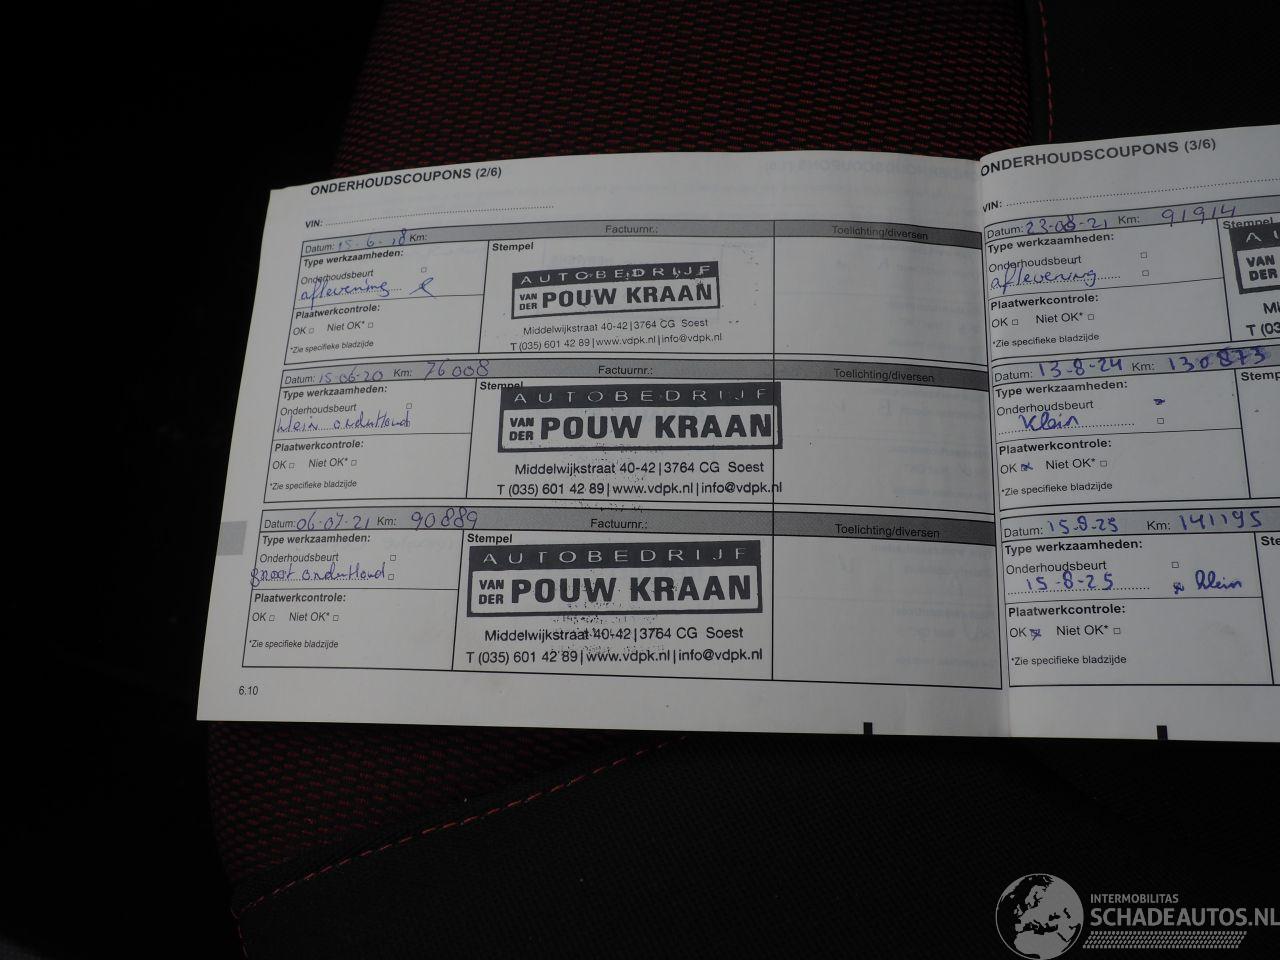 ONDERHOUDSCOUPONS (2/6)
VIN:
Datum: 15-6-18 Km: Factuurnr.: Toelichting/diversen
Type werkzaamheden:
Onderhoudsbeurt
aflevering
Plaatwerkcontrole:
OK Niet OK*
*Zie specifieke bladzijde
Stempel
AUTOBEDRIJF
VAN DER POUW KRAAN
Middelwijkstraat 40-42|3764 CG Soest
T (035) 601 42 89|www.vdpk.nl|info@vdpk.nl
Datum: 15-06-20 Km: 76008 Factuurnr.: Toelichting/diversen
Type werkzaamheden:
Onderhoudsbeurt
klein onderhoud
Plaatwerkcontrole:
OK Niet OK*
*Zie specifieke bladzijde
Stempel
AUTOBEDRIJF
VAN DER POUW KRAAN
Middelwijkstraat 40-42|3764 CG Soest
T (035) 601 42 89|www.vdpk.nl|info@vdpk.nl
Datum: 06-07-21 Km: 90889 Factuurnr.: Toelichting/diversen
Type werkzaamheden:
Onderhoudsbeurt
groot onderhoud
Plaatwerkcontrole:
OK Niet OK*
*Zie specifieke bladzijde
Stempel
AUTOBEDRIJF
VAN DER POUW KRAAN
Middelwijkstraat 40-42|3764 CG Soest
T (035) 601 42 89|www.vdpk.nl|info@vdpk.nl
6.10
ONDERHOUDSCOUPONS (3/6)
VIN:
Datum: 23-08-21 Km: 91914
Type werkzaamheden:
Onderhoudsbeurt
aflevering
Plaatwerkcontrole:
OK Niet OK*
*Zie specifieke bladzijde
Stempel
AU
VAN DER
Mi
T (03
Datum: 13-8-24 Km: 130873
Type werkzaamheden:
Onderhoudsbeurt
Klein
Plaatwerkcontrole:
OK Niet OK*
*Zie specifieke bladzijde
Stemp
Datum: 15-8-25 Km: 141195
Type werkzaamheden:
Onderhoudsbeurt
15-8-25 klein
Plaatwerkcontrole:
OK Niet OK*
*Zie specifieke bladzijde
Ste
INTERMOBILITAS
SCHADEAUTOS.NL